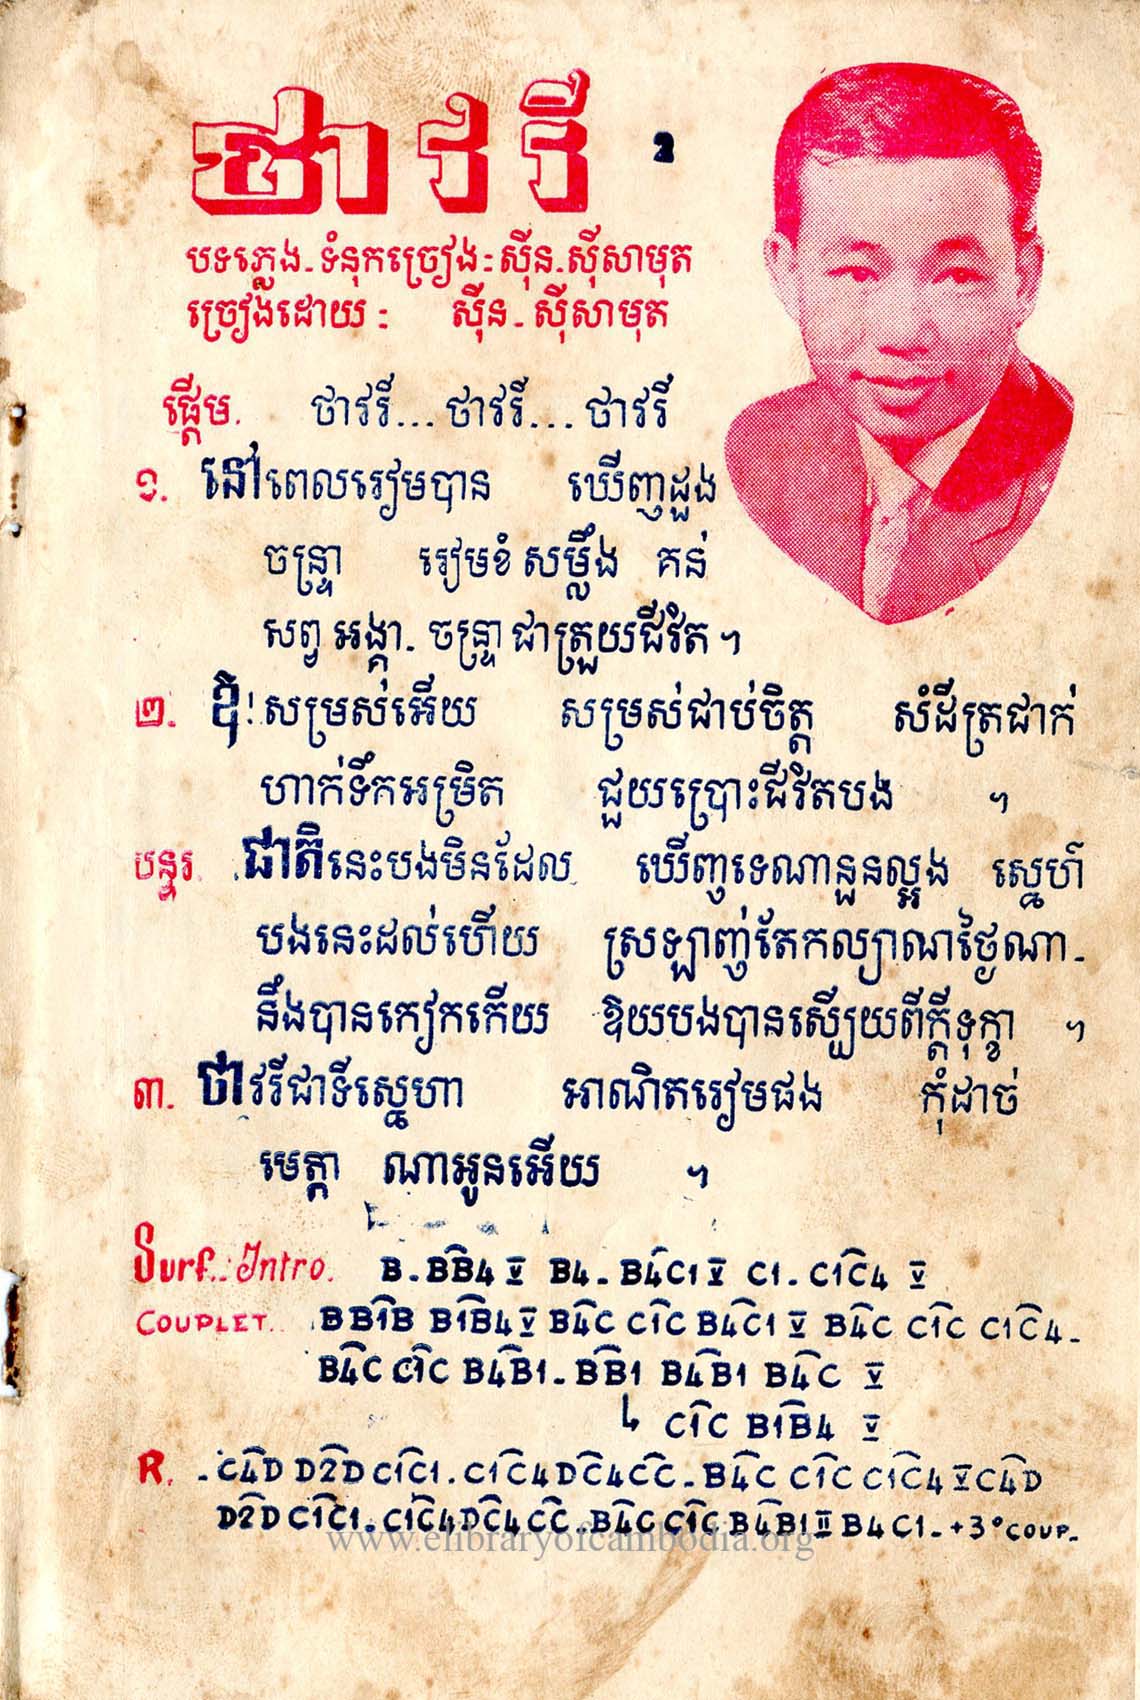 ថាវរី 2
បទភ្លេង - ទំនុកច្រៀង : ស៊ីន - ស៊ីសាមុត
ច្រៀងដោយ : ស៊ីន - ស៊ីសាមុត
ផ្តើម. ថាវរី... ថាវរី... ថាវរី
១. នៅពេលរៀមបាន ឃើញដួង
ចន្ទ្រា រៀមខំ សម្លឹង គន់
សព្វ អង្គា - ចន្ទ្រា ជាត្រួយជីវិត ។
២. ឱ! សម្រស់អើយ សម្រស់ជាប់ចិត្ត សំដីត្រជាក់
ហាក់ទឹកអម្រិត ជួយប្រោះជីវិតបង ។
បន្ទរ ជាតិនេះបងមិនដែល ឃើញទេណានួនល្អង ស្នេហ៍
បងនេះដល់ហើយ ស្រឡាញ់តែកល្យាណថ្ងៃណា-
នឹងបានកៀកកើយ ឱយបងបានស្បើយពីក្តីទុក្ខា ។
៣. ថាវរីជាទីស្នេហា អាណិតរៀមផង កុំដាច់
មេត្តា ណាអូនអើយ ។
Surf.. Intro. B - BB4 V B4 - B4C1 V C1 - C1C4 V
COUPLET.. BB1B B1B4 V B4C C1C B4C1 V B4C C1C C1C4 -
B4C C1C B4B1 - BB1 B4B1 B4C V
↳ C1C B1B4 V
R. - C4D D2D C1C1 - C1C4DC4CC - B4C C1C C1C4 V C4D
D2D C1C1 - C1C4DC4CC - B4C C1C B4B1 II B4C1 - +3° COUP -
www.elibraryofcambodia.org